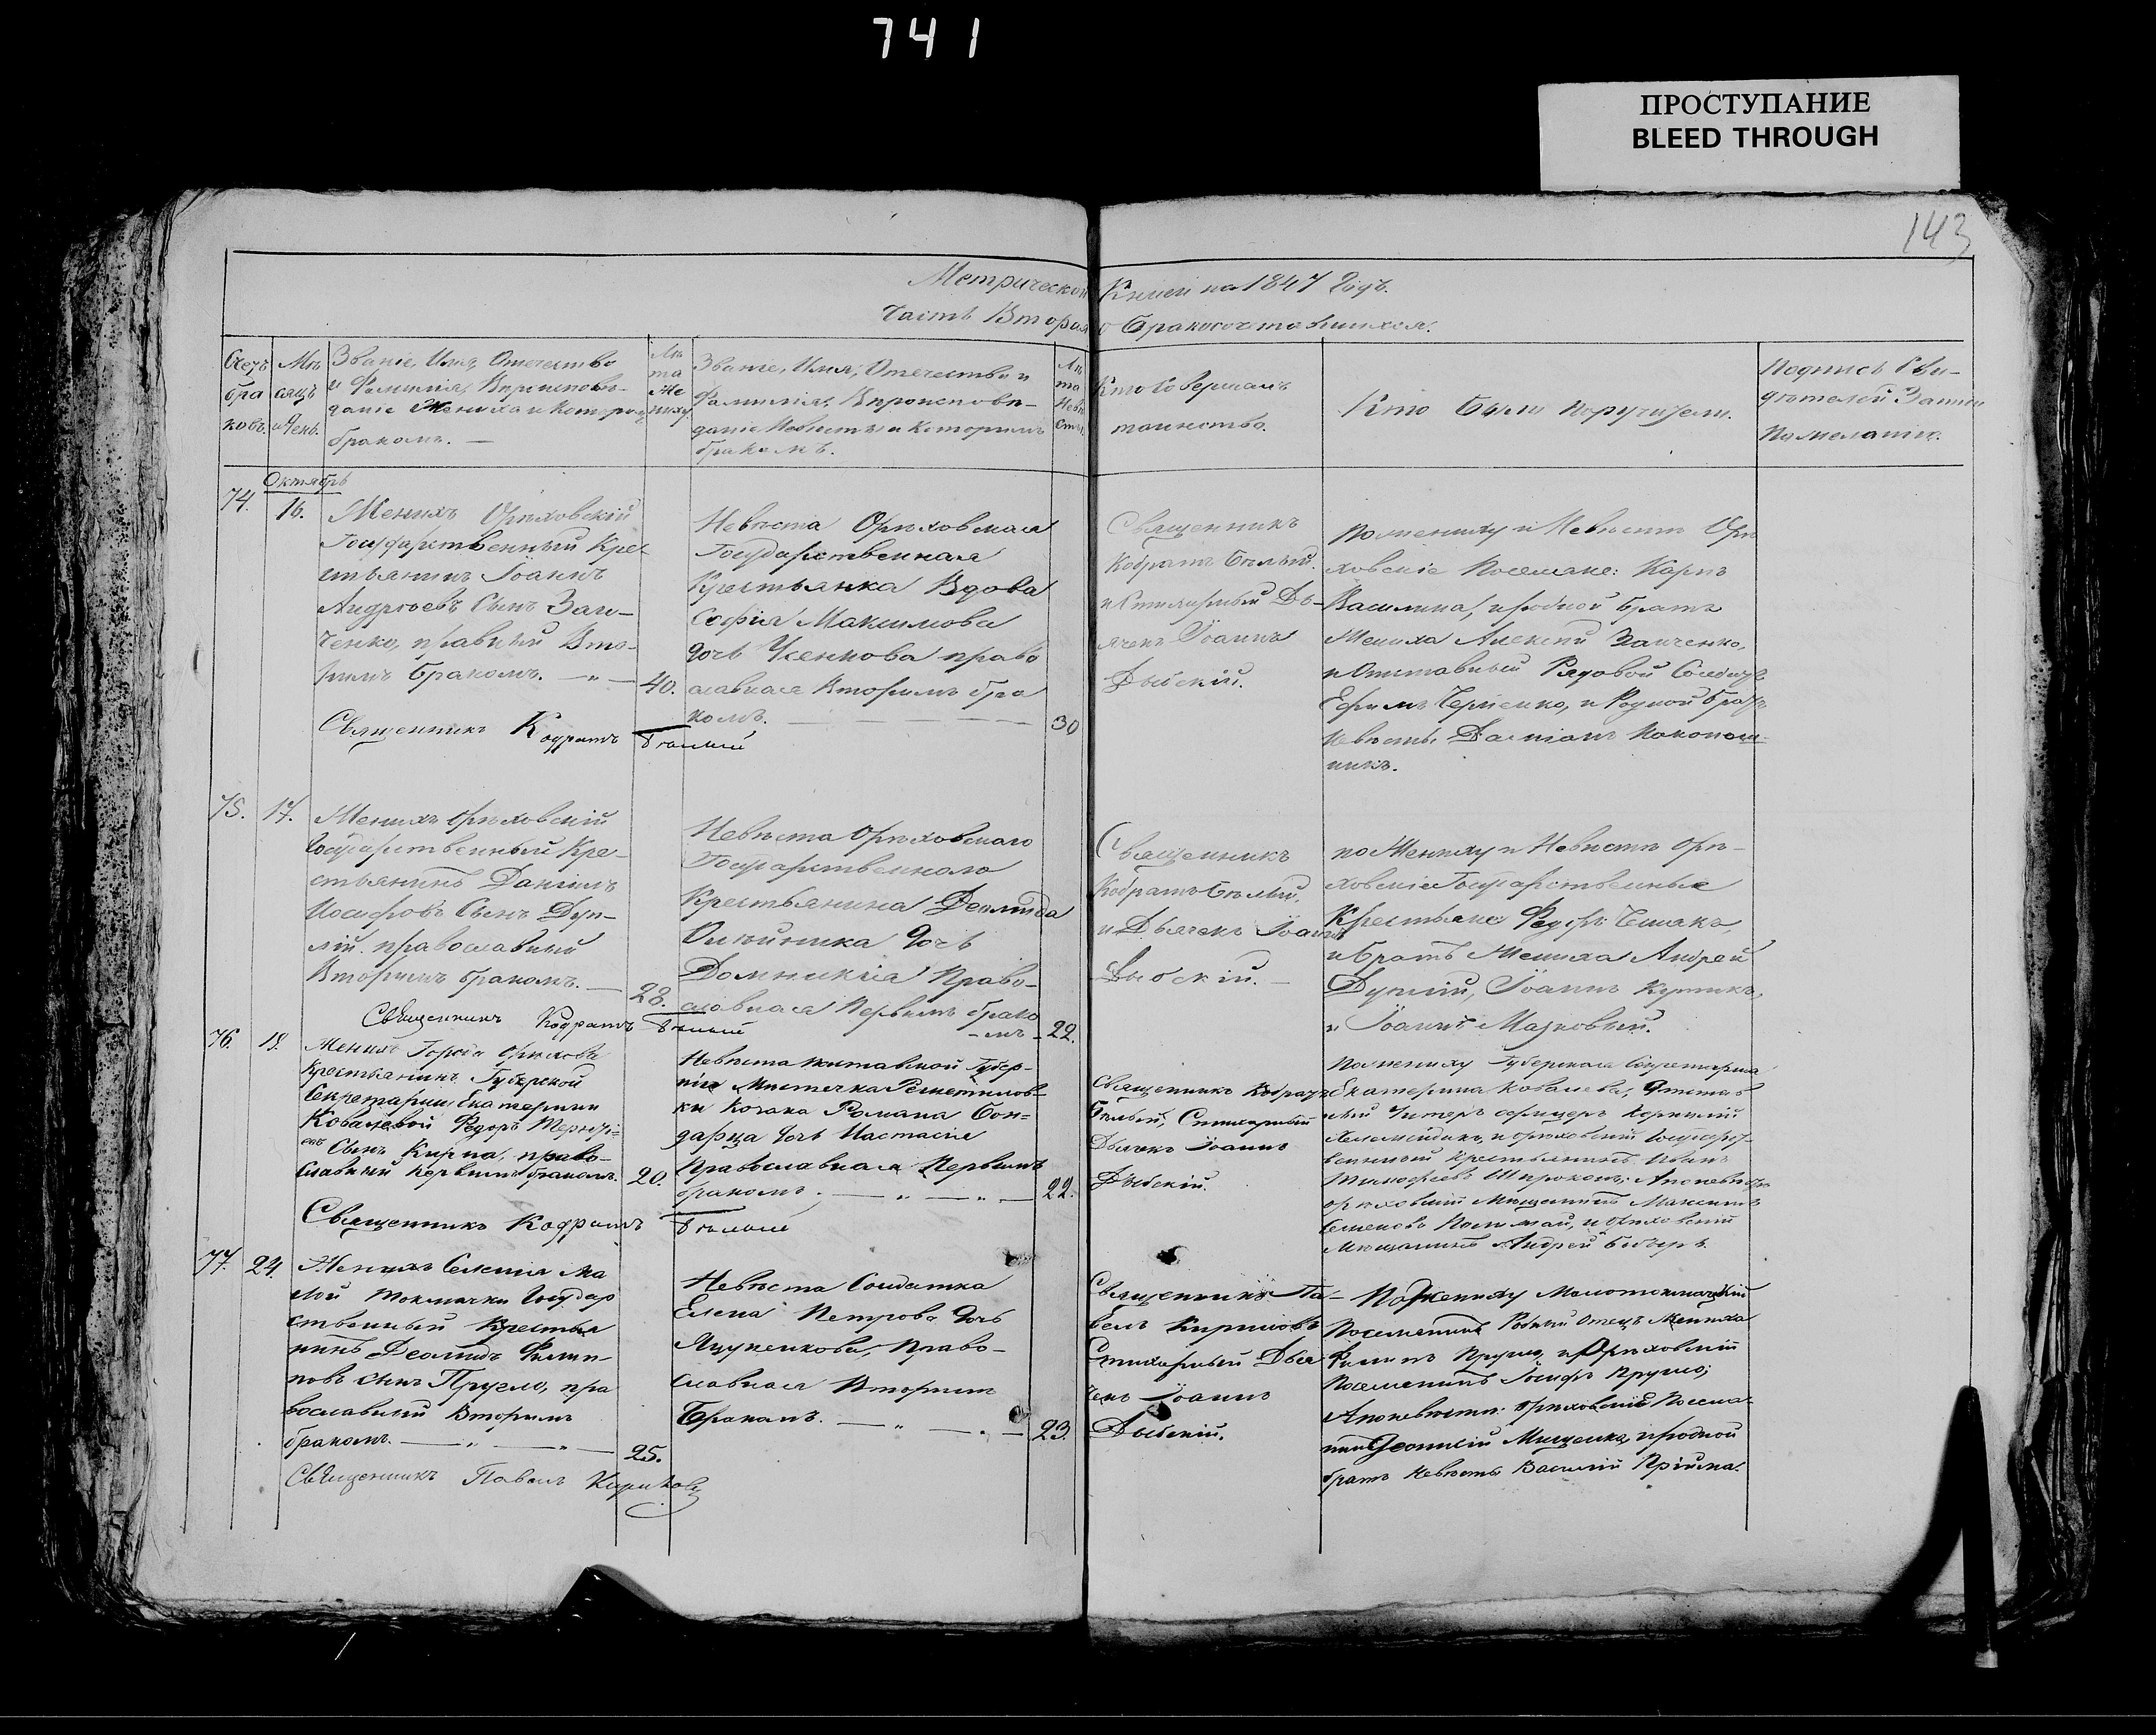 741
ПРОСТУПАНИЕ
BLEED THROUGH
143
Метрической Книги на 1847 Годъ.
Часть Вторая о Бракосочетавшихся.
Счетъ
бра
ковъ.
Мѣ
сяцъ
и День.
Званіе, Имя, Отечество
и Фамилія, Вѣроисповѣ-
даніе Жениха и Которымъ
бракомъ. —
Лѣ
та
Же
ниху.
Званіе, Имя, Отечество и
Фамилія, Вѣроисповѣ-
даніе Невѣсты и Которымъ
бракомъ.
Лѣ
та
Невѣ
сты.
Кто Совершалъ
таинство.
Кто были поручители.
Подпись Сви-
дѣтелей Записи
По желанію.
Октябрь
74.
16.
Женихъ Орѣховскій
Государственный Кре
стьянинъ Іоаннъ
Андреевъ Сынъ Заи-
ченко, правный Вто-
рымъ бракомъ. — „ —
40.
Невѣста Орѣховская
Государственная
Крестьянка Вдова
Софія Максимова
дочь Усенкова право
славная Вторымъ бра
комъ. — — —
30
Священникъ Кодратъ Бѣлый
Священникъ
Кодратъ Бѣлый.
и Стихарный Дь-
ячекъ Іоаннъ
Дыбскій.
По жениху и Невѣстѣ Орѣ
ховскіе Поселяне: Карпъ
Василина, и родной братъ
Жениха Алексій Заиченко,
и Отставный Рядовой Солдатъ
Ефимъ Черненко, и Родной братъ
Невѣсты Даміанъ
никъ.
75.
17.
Женихъ Орѣховскій
Государственный Кре-
стьянинъ Даніилъ
Іосифовъ Сынъ Дуп-
лій. православный
Вторымъ бракомъ. —
28.
Невѣста Орѣховскаго
Государственнаго
Крестьянина Деомида
Олійника Дочь
Домникія Право-
славная Первымъ брако
-мъ -
22.
Священникъ Кодратъ Бѣлый
Священникъ
Кодратъ Бѣлый.
и Дьячекъ Іоаннъ
Дыбскій. —
по Жениху и Невѣстѣ Орѣ-
ховскіе Государственные
Крестьяне Федоръ Чешакъ,
и братъ Жениха Андрей
Дуплій, Іоаннъ
и Іоаннъ Мазковый.
76.
18.
Женихъ Города Орѣхова
Крестьянинъ Губернской
Секретарши Екатерины
Ковалевой Федоръ Терентi=
евъ Сынъ Кирпа, право-
славный первымъ бракомъ.
20.
Невѣста Полтавской Губер-
ніи Мистечка Решетилов-
ки Козака Романа Бон-
даря дочь Настасія
Православная Первымъ
бракомъ. — „ — „ —
22.
Священникъ Кодратъ Бѣлый
Священникъ Кодратъ
Бѣлый, Стихарный
Дьячекъ Іоаннъ
Дыбскій.
По жениху Губернская Секретарша
Екатерина Ковалева, Отстав
ный Унтеръ офицеръ
и орѣховскій Государст-
венный Крестьянинъ Иванъ
Тимофеевъ Широконъ; А по невѣстѣ
орѣховскій Мещанинъ Максимъ
Семеновъ и орѣховскій
Мещанинъ Андрей
77.
24.
Женихъ Селенія Ма
лой Токмачки Государ
ственный Крестья
нинъ Деомидъ Филип-
повъ сынъ Пругло, пра
вославный Вторымъ
бракомъ. — „ — „ —
25.
Невѣста Солдатка
Елена Петрова Дочь
Яцуненкова, Право-
славная Вторымъ
Бракомъ. — „ — „ —
23.
Священникъ Павелъ Кириловъ
Священникъ Па-
велъ Кириловъ
Стихарный Дья
чекъ Іоаннъ
Дыбскій.
По Жениху Малотокмачскій
Поселянинъ Родный Отецъ Жениха
Филипъ Пругло, и Орѣховскій
Поселянинъ Іосифъ Пругло;
А по невѣстѣ: орѣховскій Поселя-
нинъ Діонисій Мищенко, и родной
братъ Невѣсты Василій Прійма.